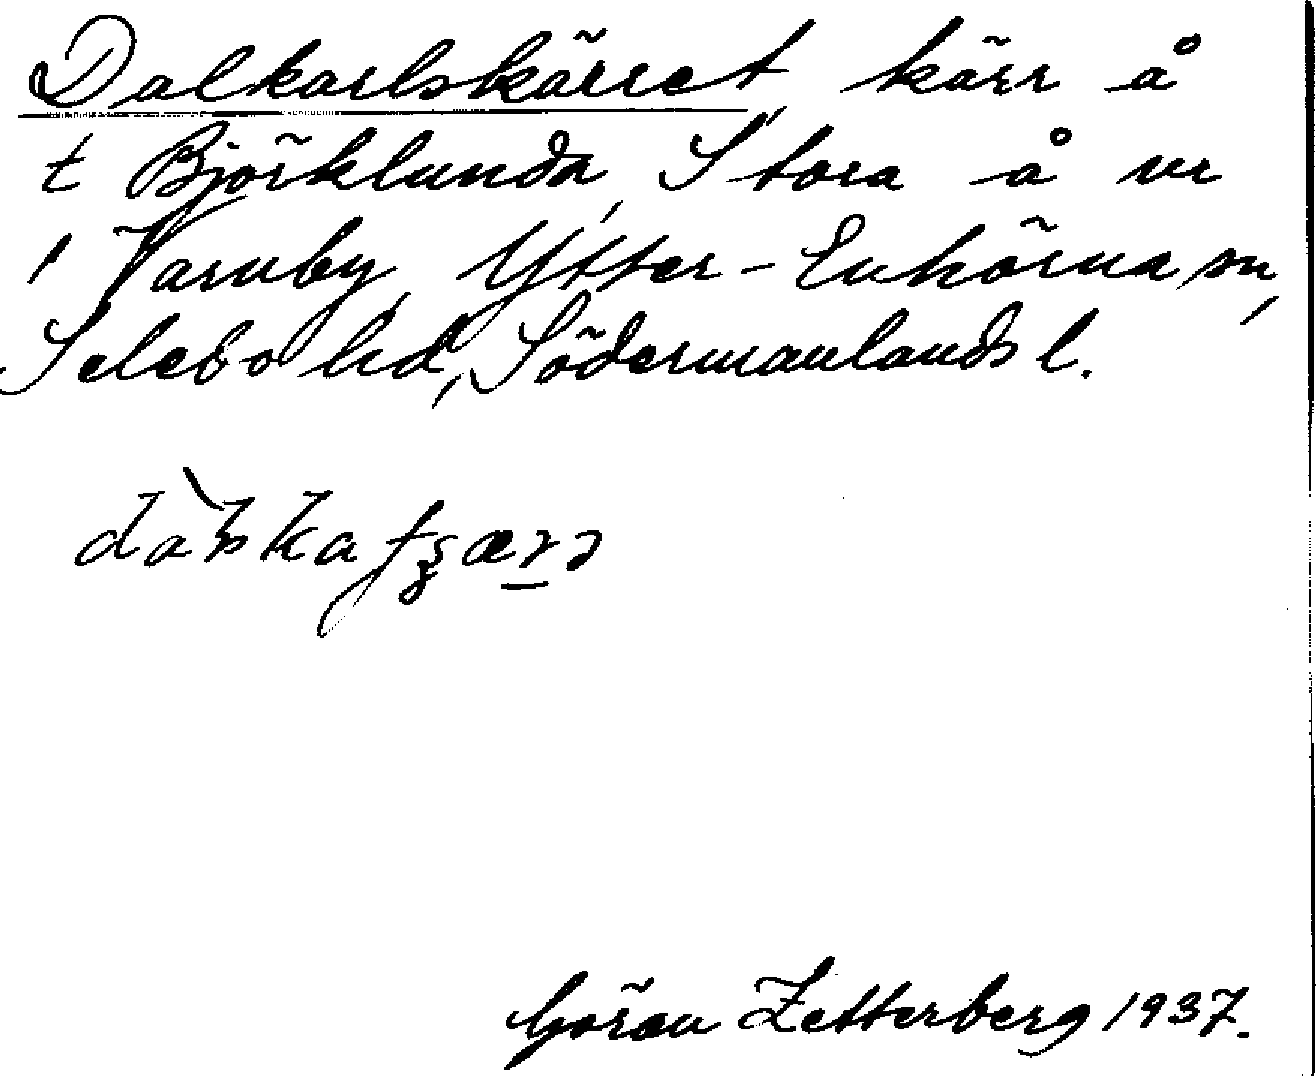 Dalkarlskärret, kärr å
t Björklunda, Stora å nr
1 Varnby, Ytter-Enhörna sn,
Selebo hd, Södermanlands l.
Göran Zetterberg 1937.